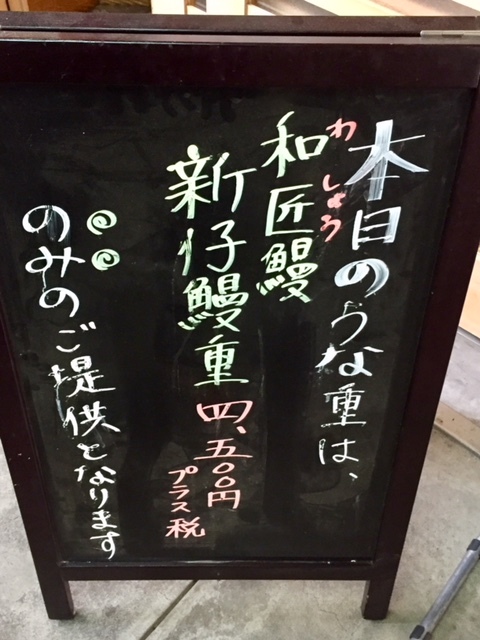 本日のうな重は、
わしょう
和匠鰻
新仔鰻重 四、五〇〇円
プラス税
のみのご提供となります